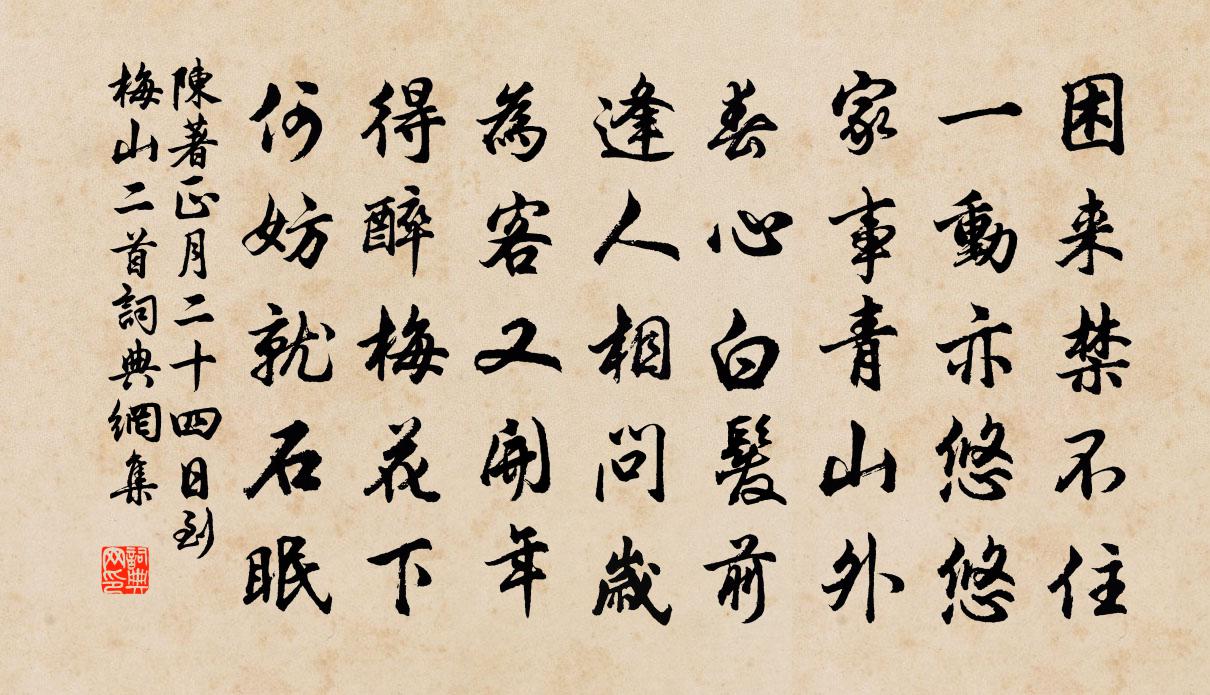 困来禁不住
一動亦悠悠
家事青山外
春心白髮前
逢人相問歳
為客又開年
得醉梅花下
何妨就石眠
陳著正月二十四日到
梅山二首詞典網集
詞典
网印